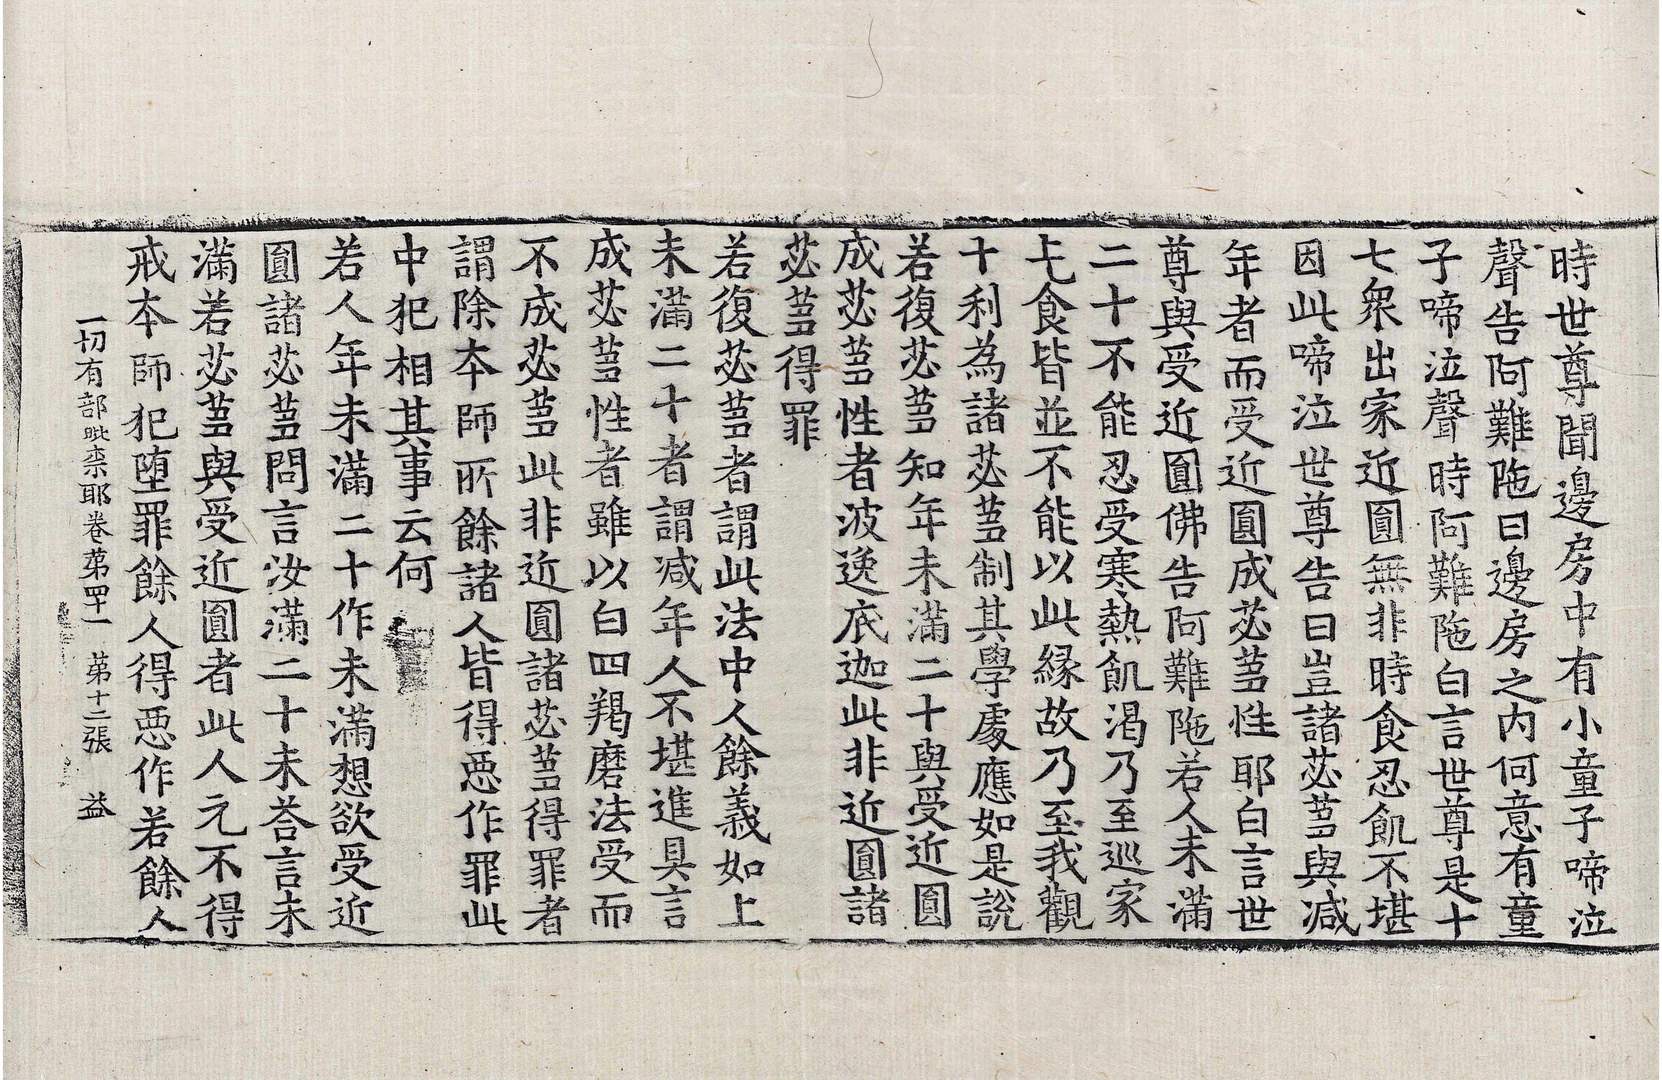 時世尊聞邊房中有小童子啼泣
聲告阿難陁曰邊房之內何意有童
子啼泣聲時阿難陁白言世尊是十
七衆出家近圓無非時食忍飢不堪
因此啼泣世尊告曰豈諸苾芻與减
年者而受近圓成苾芻性耶白言世
尊與受近圓佛告阿難陁若人未滿
二十不能忍受寒熱飢渴乃至巡家
乞食皆並不能以此緣故乃至我觀
十利為諸苾芻制其學處應如是說
若復苾芻知年未滿二十與受近圓
成苾芻性者波逸底迦此非近圓諸
苾芻得罪
若復苾芻者謂此法中人餘義如上
未滿二十者謂减年人不堪進具言
成苾芻性者雖以白四羯磨法受而
不成苾芻此非近圓諸苾芻得罪者
謂除本師所餘諸人皆得惡作罪此
中犯相其事云何
若人年未滿二十作未滿想欲受近
圓諸苾芻問言汝滿二十未荅言未
滿若苾芻與受近圓者此人元不得
戒本師犯堕罪餘人得惡作若餘人
一切有部毗柰耶卷苐四十一 苐十二張 益